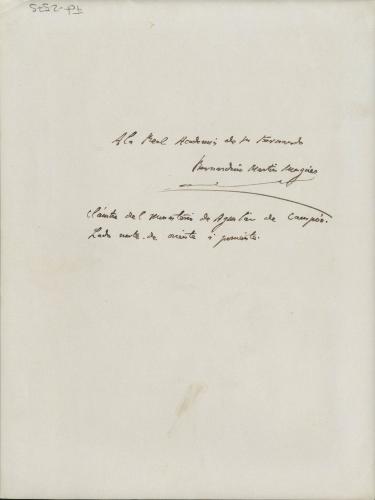 A la Real Academia de Sn Fernando
Bernardino Martín Mínguez
Claustro del Monasterio de Aguilar de Campóo.
Lado norte de oriente á poniente.